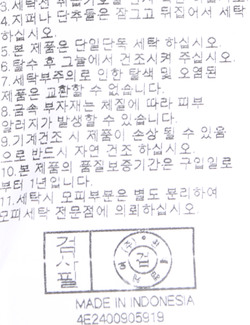 3.세탁전
4.지퍼나 단추등은 잠그고 뒤집어서 세탁
하십시오.
5.본 제품은 단일단독 세탁 하십시오.
6.탈수 후 그늘에서 건조시켜 주십시오.
7.세탁부주의로 인한 탈색 및 오염된
제품은 교환할 수 없습니다.
8.금속 부자재는 체질에 따라 피부
알러지가 발생할 수 있습니다.
9.기계건조 시 제품이 손상 될 수 있음
으로 반드시 자연 건조 하십시오.
10.본 제품의 품질보증기간은 구입일로
부터 1년입니다.
11.세탁시 모피부분은 별도 분리하여
모피세탁 전문점에 의뢰하십시오
검사필
검
MADE IN INDONESIA
4E2400905919